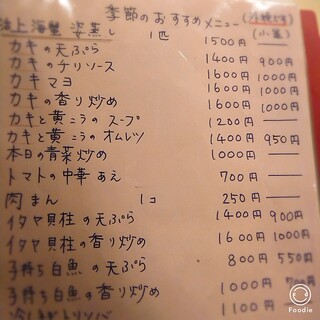 季節のおすすめメニュー
上海蟹 姿蒸し 1匹 1500円 (小盆)
カキの天ぷら 1400 900円
カキのチリソース 1600 1000円
カキマヨ 1600 1000円
カキの香り炒め 1600 1000円
カキと黄ニラのスープ 1200円
カキと黄ニラのオムレツ 1400円 950円
本日の青菜炒め 1000円
トマトの中華あえ 700円
肉まん 1コ 250円
イタヤ貝柱の天ぷら 1400円 900円
イタヤ貝柱の香り炒め 1600 1000円
子持ち白魚の天ぷら 800円 550円
子持ち白魚の香り炒め 1000円
1100円
Foodie